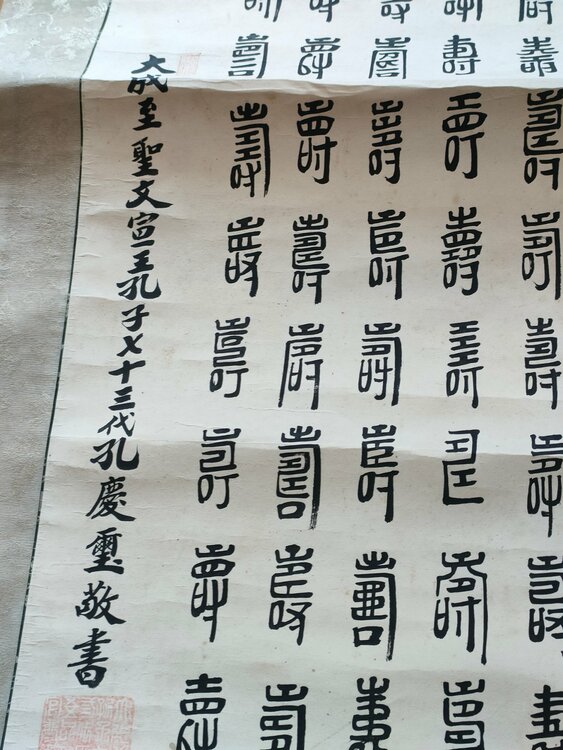 壽壽壽壽壽壽壽
壽壽壽壽壽壽壽
壽壽壽壽壽壽壽
壽壽壽壽壽壽壽
壽壽壽壽壽壽壽
大成至聖文宣王孔子七十三代孔慶璽敬書